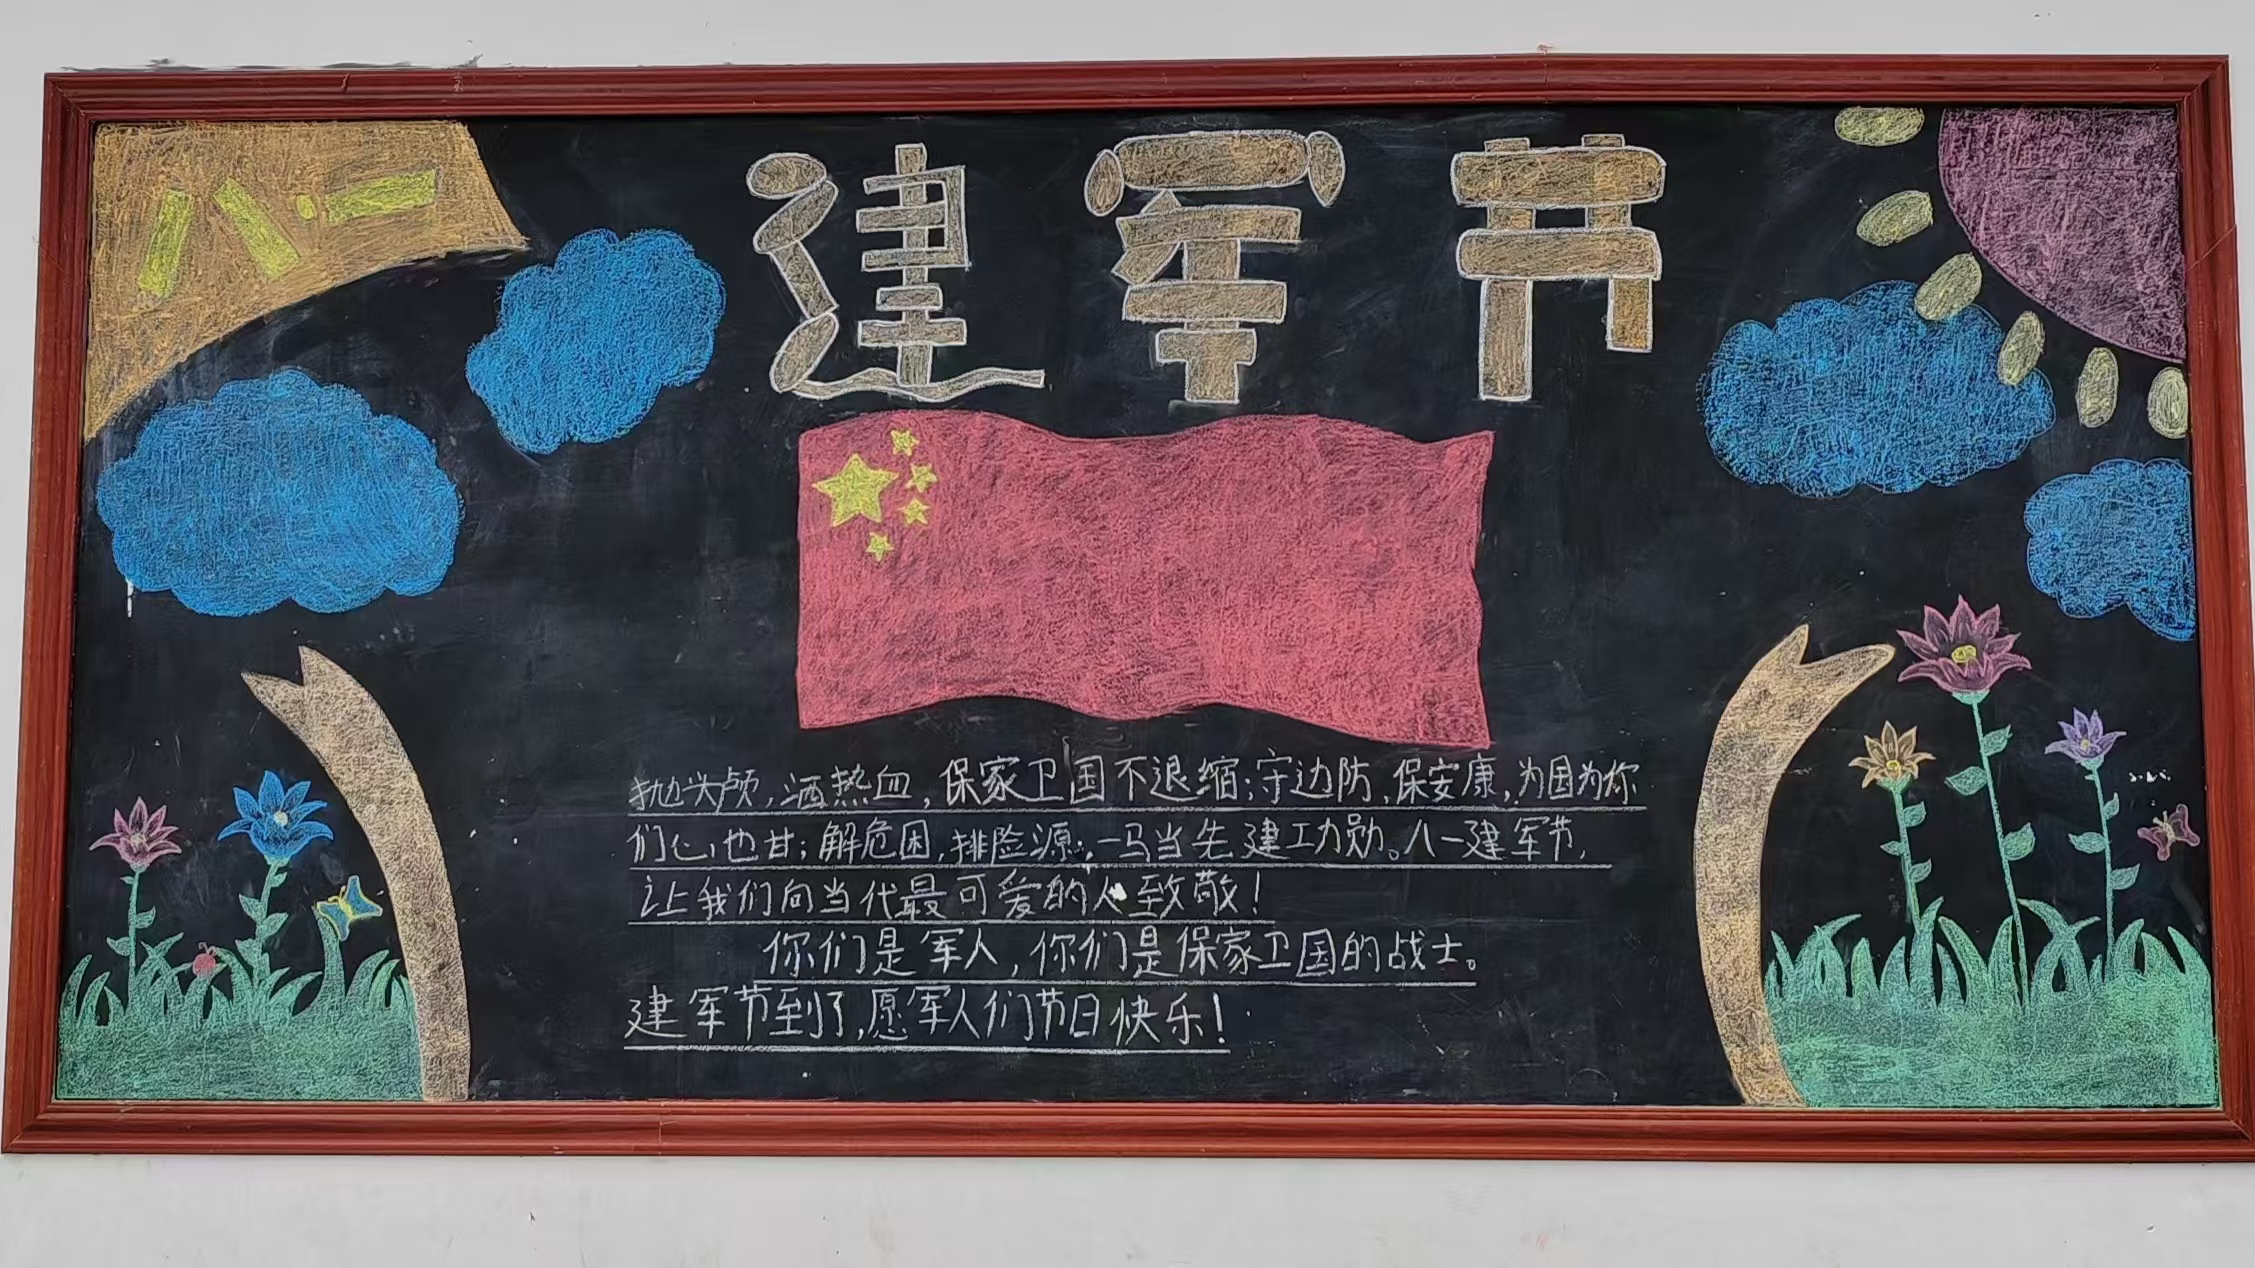 八·一
建军节
抛头颅，洒热血，保家卫国不退缩；守边防，保安康，为国为你
们心也甘；解危困，排险源，一马当先建工力勋。八一建军节，
让我们向当代最可爱的人致敬！
你们是军人，你们是保家卫国的战士。
建军节到了，愿军人们节日快乐！